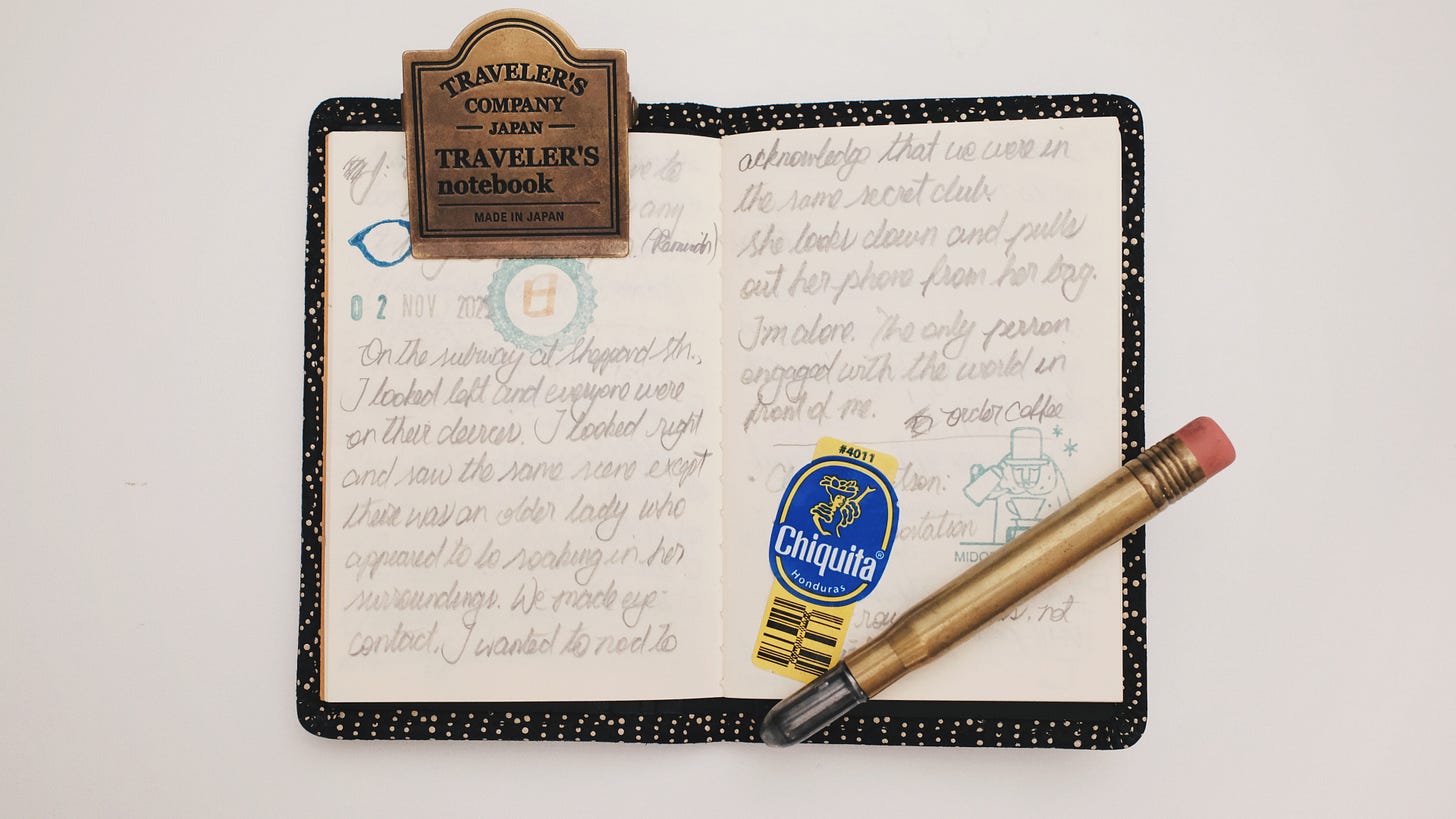 TRAVELER'S
COMPANY
JAPAN
TRAVELER'S
notebook
MADE IN JAPAN
to
any
02 NOV
On the subway at Sheppard Stn.,
I looked left and everyone were
on their devices. I looked right
and saw the same scene except
there was an older lady who
appeared to be soaking in her
surroundings. We made eye-
contact. I wanted to nod to
acknowledge that we were in
the same secret club.
She looks down and pulls
out her phone from her bag.
I'm alone. The only person
engaged with the world in
front of me.
order coffee
#4011
Chiquita®
Honduras
MIDO
not